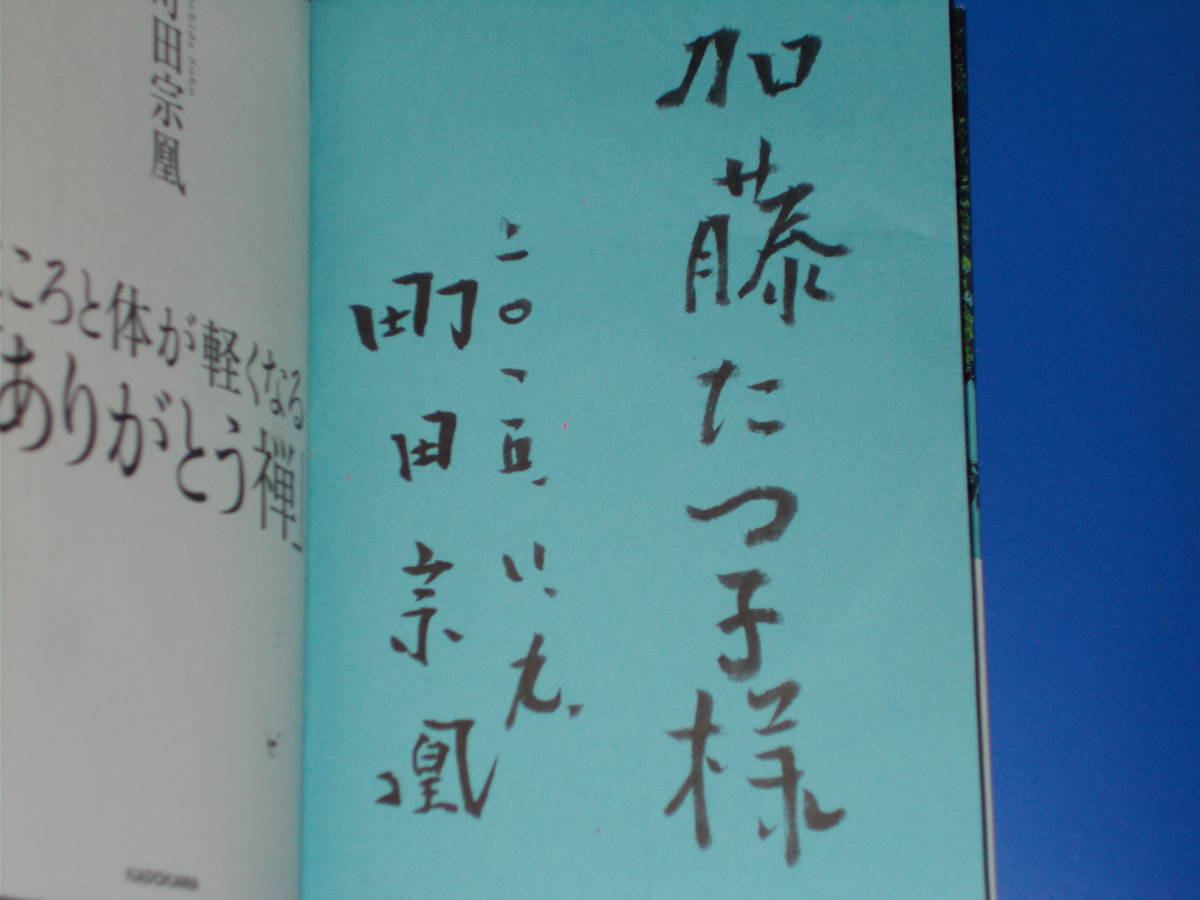 町田宗凰
ころと体が軽くなる
ありがとう禅」
KADOKAWA
加藤たつ子様
二〇一五、八、九、
町田宗凰